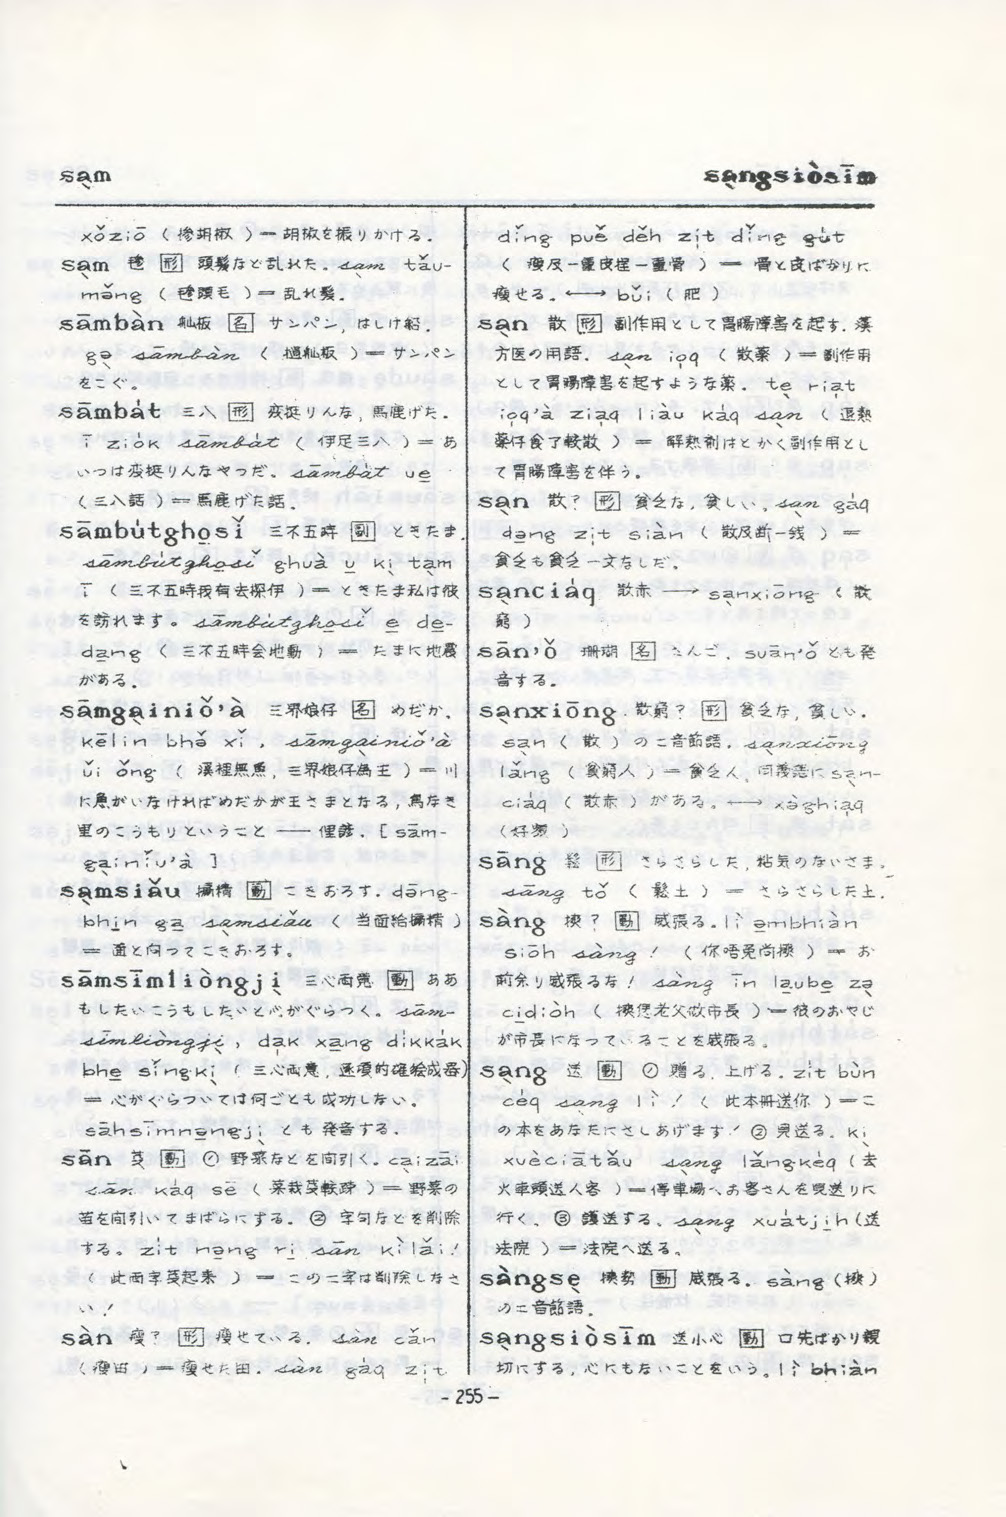 sa̱m
sa̱ngsiòsīm
xŏ͘ziō (摻胡椒) ＝ 胡椒を振りかける.
sa̱m 毿 [形] 頭髪など乱れた. sa̱m tău-
mǎng (毿頭毛) ＝ 乱れ髪.
sāmbàn 舢板 [名] サンパン, はしけ船.
sāmbàn (舢板) ＝ サンパン
をこぐ.
sāmbát 三八 [形] 馬鹿げた.
ī ziok sāmbát (伊足三八) ＝ あ
いつは なやつだ. sāmbát ue
(三八話) ＝ 馬鹿げた話.
sāmbútghosí 三不五時 [副] ときたま
sāmbútghosí ghuà u ki tam
ī (三不五時我有去探伊) ＝ ときたま私は彼
を訪れます. sāmbútghosí e de-
dang (三不五時会地動) ＝ たまに地震
がある.
sāmgainiǒ'à 三界娘仔 [名] めだか.
kēlin bhǒ xǐ, sāmgainiǒ'à
ǔi ǒng (溪裡無魚, 三界娘仔為王) ＝ 川
に魚がいなければめだかが王さまとなる, 鳥なき
里のこうもりということ ── 俚諺. [sām-
gainiǔ'à]
samsiǎu [動] こきおろす. dāng-
bhin ga samsiǎu (当面給 )
＝ 面と向ってこきおろす.
sāmsīmliòngji 三心両意 [動] ああ
もしたいこうもしたいと心がぐらつく. sām-
sīmliòngji, dak xang dikkak
bhe sīngki (三心両意, 逐項的確 成器)
＝ 心がぐらついては何ごとも成功しない.
sāhsīmnengji とも発音する.
sān 芟 [動] ① 野菜などを間引く. caizāi
sān káq sē (菜栽芟較疎) ＝ 野菜の
苗を間引いてまばらにする. ② 字句などを削除
する. zit neng ri sān kilài!
(此両字芟起来) ＝ この二字は削除しなさ
い!
sàn 瘦? [形] 瘦せている. sàn cǎn
(瘦田) ＝ 瘦せた田. sàn gàq zit
dǐng puě děh zit dǐng gút
(瘦皮一重皮 一重骨) ＝ 骨と皮ばかりに
瘦せる. ←→ bǔi (肥)
san 散 [形] 副作用として胃腸障害を起す. 漢
方医の用語. san ioq (散薬) ＝ 副作用
として胃腸障害を起すような薬. te riat
ioq'à ziaq liàu káq san (退熱
薬仔食了較散) ＝ 解熱剤はとかく副作用とし
て胃腸障害を伴う.
san 散? [形] 貧乏な, 貧しい. san gàq
dang zit siàn (散及断一銭) ＝
貧乏も貧乏一文なしだ.
sanciáq 散赤 ─→ sanxiōng (散
窮)
sān'ǒ 珊瑚 [名] さんご. suān'ǒ とも発
音する.
sanxiōng 散窮? [形] 貧乏な, 貧しい.
san (散) の二音節語. sanxiōng
lǎng (貧窮人) ＝ 貧乏人. 同義語に san-
ciáq (散赤) がある. ←→ xòghiaq
(好 )
sāng 鬆 [形] さらさらした, 粘気のないさま.
sāng tǒ (鬆土) ＝ さらさらした土.
sàng ? [動] 威張る. lì embhiàn
siōh sàng! (你唔免尚 ) ＝ お
前余り威張るな! sàng īn laube ze
cidiòh ( 老父做市長) ＝ 彼のおやじ
が市長になっていることを威張る.
sang 送 [動] ① 贈る, 上げる. zit bùn
céq sang lì! (此本冊送你) ＝ こ
の本をあなたにさしあげます! ② 見送る. ki
xuèciātǎu sang lǎngkéq (去
火車頭送人客) ＝ 停車場へお客さんを見送りに
行く. ③ 護送する. sang xuátjih (送
法院) ＝ 法院へ送る.
sàngse 勢 [動] 威張る. sàng ( )
の二音節語.
sangsiòsīm 送小心 [動] 口先ばかり親
切にする, 心にもないことをいう. lì bhiàn
- 255 -